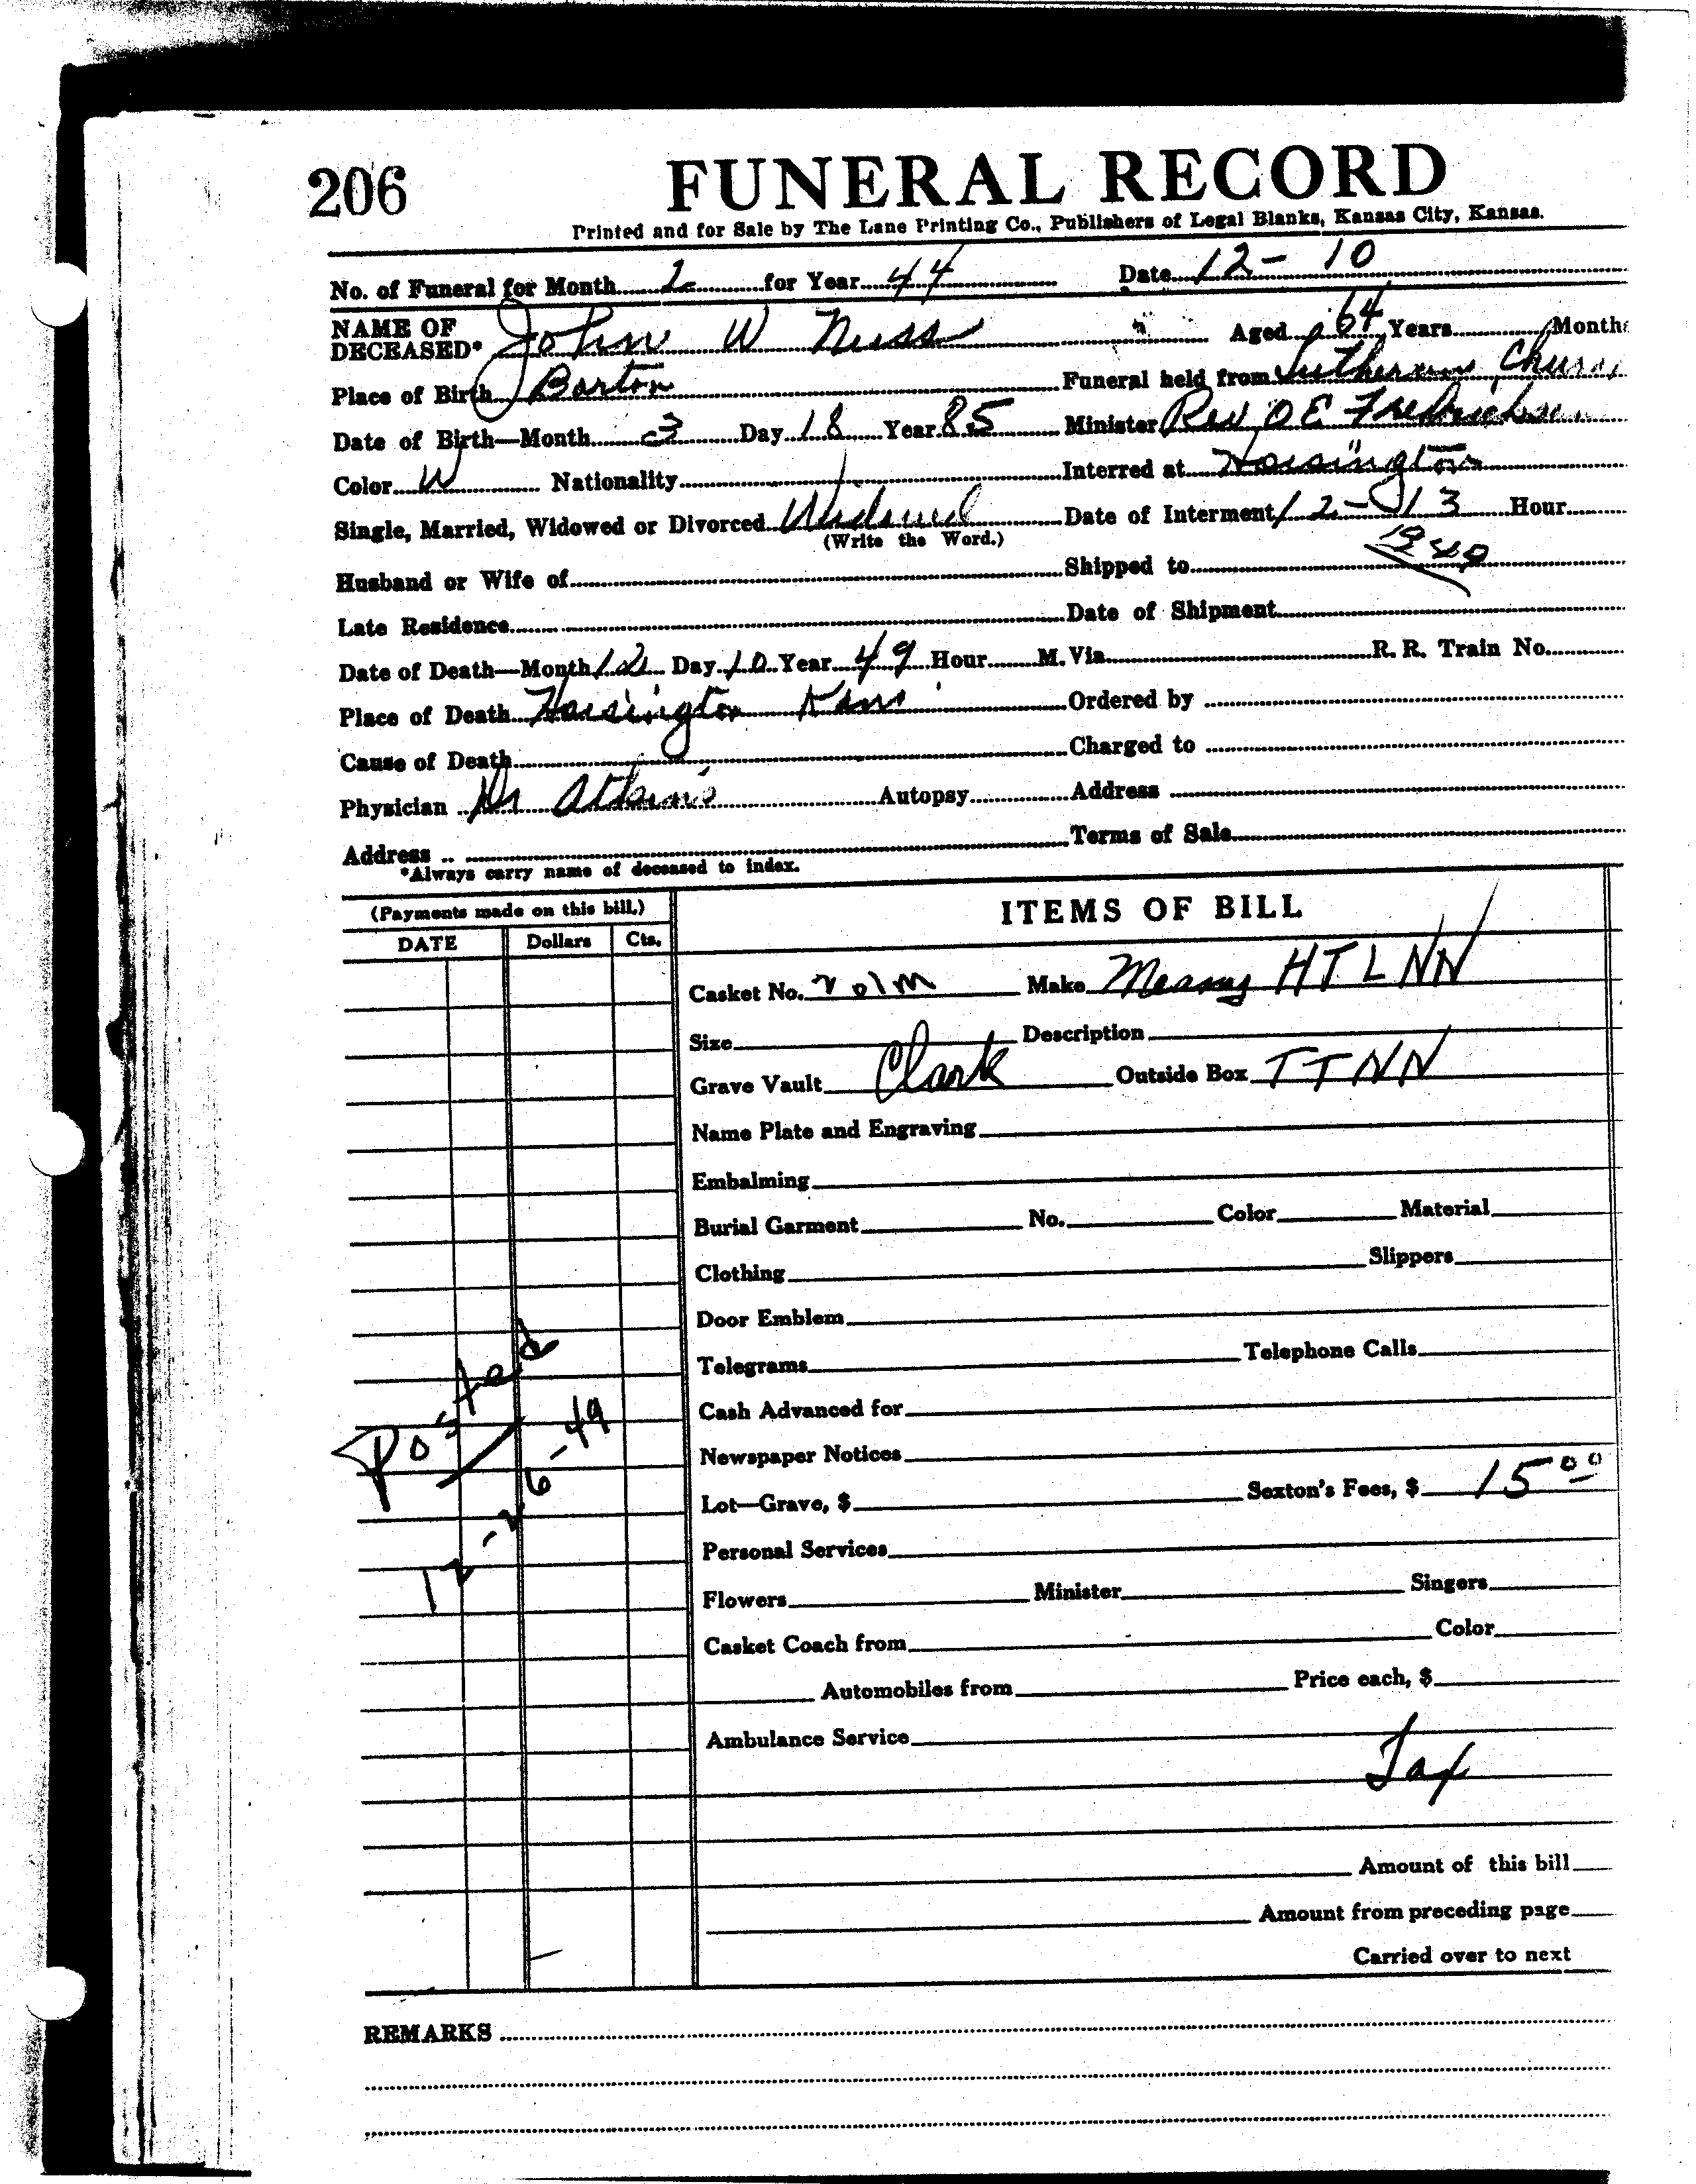 206
FUNERAL RECORD
Printed and for Sale by The Lane Printing Co., Publishers of Legal Blanks, Kansas City, Kansas.
No. of Funeral for Month 2 for Year 44 Date 12-10
NAME OF DECEASED* John W Nuss Aged 64 Years Months
Place of Birth Barton Funeral held from Lutheran Church
Date of Birth—Month 3 Day 18 Year 85 Minister Rev O E Fredrichsen
Color W Nationality Interred at Hoisington
Single, Married, Widowed or Divorced Widowed Date of Interment 12-13 Hour
(Write the Word.)
Husband or Wife of Shipped to
Late Residence Date of Shipment
Date of Death—Month 12 Day 10 Year 49 Hour M. Via R. R. Train No.
Place of Death Hoisington Kans Ordered by
Cause of Death Charged to
Physician Dr Atkins Autopsy Address
Address Terms of Sale
*Always carry name of deceased to index.
(Payments made on this bill.)
DATE Dollars Cts.
ITEMS OF BILL
Casket No. 201M Make HTLNN
Size Description
Grave Vault Clark Outside Box TTNN
Name Plate and Engraving
Embalming
Burial Garment No. Color Material
Clothing Slippers
Door Emblem
Telegrams Telephone Calls
Cash Advanced for
Newspaper Notices
Lot—Grave, $ Sexton's Fees, $ 15 00
Personal Services
Flowers Minister Singers
Casket Coach from Color
Automobiles from Price each, $
Ambulance Service
Tax
Posted
12-26-49
Amount of this bill
Amount from preceding page
Carried over to next
REMARKS